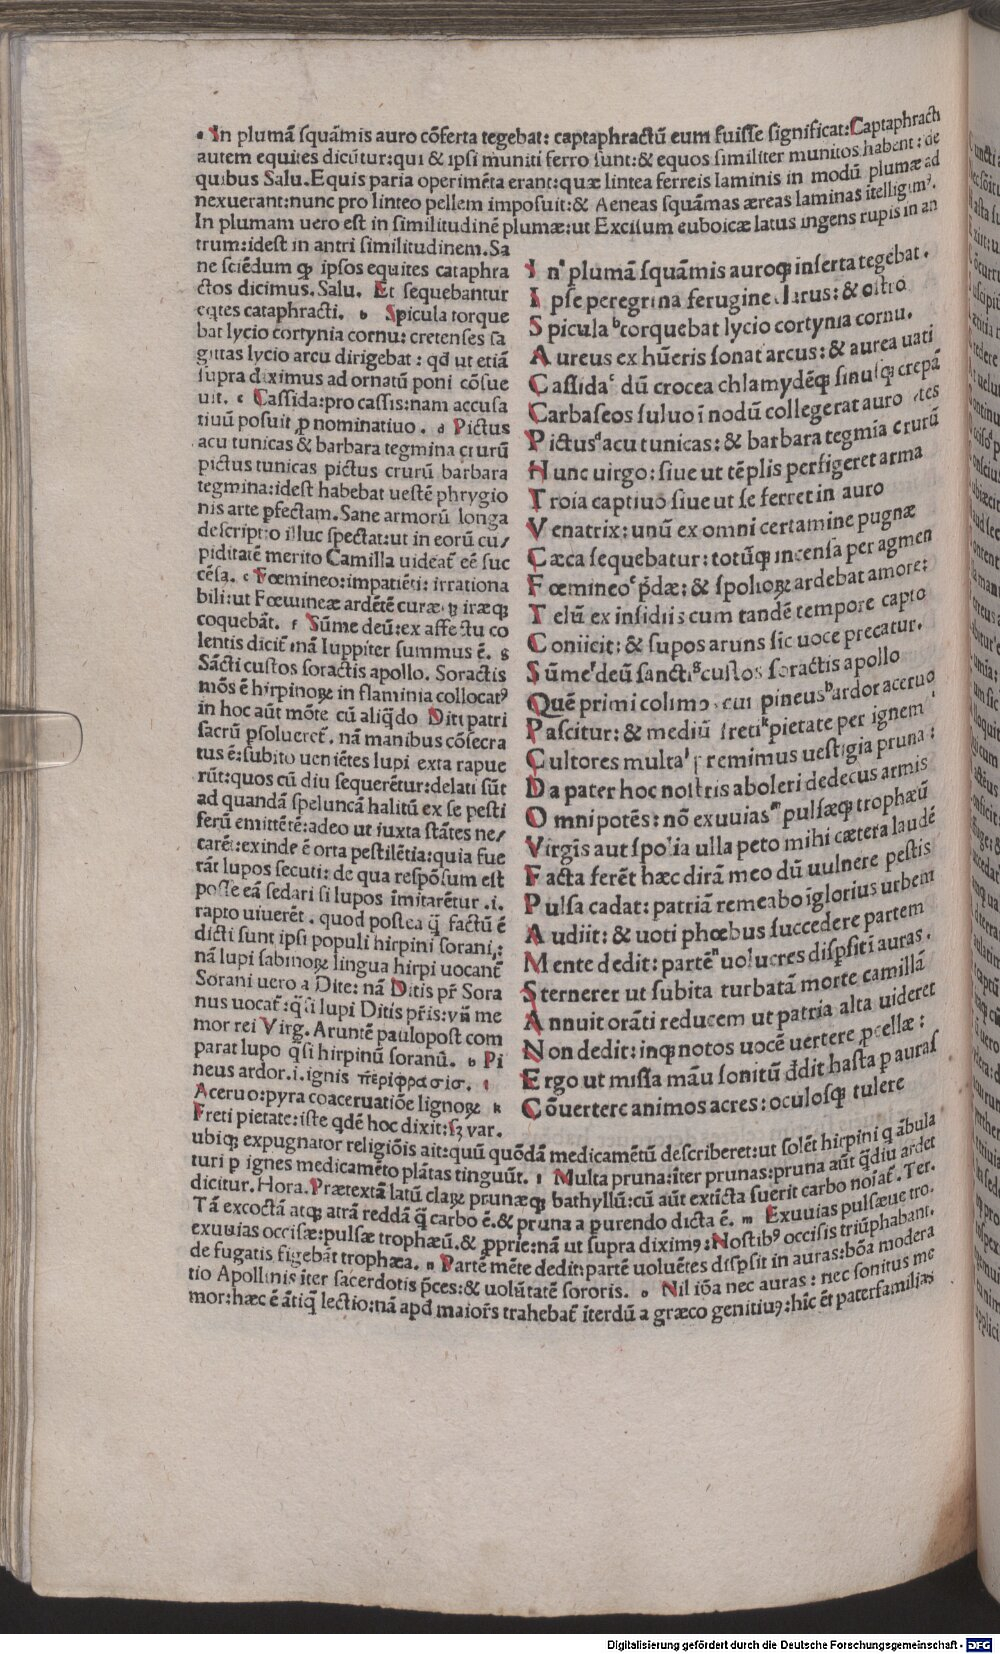 • In plumā squāmis auro cōserta tegebat: captaphractū eum fuisse significat: Captaphracti
autem equites dicūtur: qui & ipsi muniti ferro sunt: & equos similiter munitos habent: de
quibus Salu. Equis paria operimēta erant: quæ lintea ferreis laminis in modū plumæ ad
nexuerant: nunc pro linteo pellem imposuit: & Aeneas squāmas æreas laminas itelligimꝰ.
In plumam uero est in similitudinē plumæ: ut Excisum euboicæ latus ingens rupis in an
trum: idest in antri similitudinem. Sa
ne sciēdum ꝙ ipsos equites cataphra
ctos dicimus. Salu. Et sequebantur
eqtes cataphracti. b Spicula torque
bat lycio cortynia cornu: cretenses sa
gittas lycio arcu dirigebat: qd ut etiā
supra diximus ad ornatū poni cōsue
uit. c Cassida: pro cassis: nam accusa
tiuū posuit ꝓ nominatiuo. d Pictus
acu tunicas & barbara tegmina crurū
pictus tunicas pictus crurū barbara
tegmina: idest habebat uestē phrygio
nis arte pfectam. Sane armorū longa
descriptio illuc spectat: ut in eorū cu/
piditatē merito Camilla uideat̄ eē suc
cēsa. e Fœmineo: impatiēti: irrationa
bili: ut Fœmineæ ardētē curæ iræqꝫ
coquebāt. f Sūme deū: ex affectu co
lentis dicit̄ nā Iuppiter summus ē. g
Sācti custos soractis apollo. Soractis
mōs ē hirpinoꝝ in flaminia collocatꝰ
in hoc aūt mōte cū aliq̄do Diti patri
sacrū psolueret̄. nā manibus cōsecra
tus ē: subito ueniētes lupi exta rapue
rūt: quos cū diu sequerētur: delati sūt
ad quandā speluncā halitū ex se pesti
ferū emittētē: adeo ut iuxta stātes ne/
carēt: exinde ē orta pestilētia: quia fue
rāt lupos secuti: de qua respōsum est
posse eā sedari si lupos imitarētur .i.
rapto uiuerēt. quod postea q̄ factū ē
dicti sunt ipsi populi hirpini sorani:
nā lupi sabinoꝝ lingua hirpi uocant̄
Sorani uero a Dite: nā Ditis pr̄ Sora
nus uocat̄: q̄si lupi Ditis pr̄is: vn̄ me
mor rei Virg. Aruntē paulopost com
parat lupo q̄si hirpinū soranū. h Pi
neus ardor .i. ignis περιφρασισ. i
Aceruo: pyra coaceruatiōe lignoꝝ k
Freti pietate: iste qdē hoc dixit: sꝫ var.
I nꝰ plumā squāmis auroqꝫ inserta tegebat.
I pse peregrina ferugine clarus: & ostro
S picula b torquebat lycio cortynia cornu.
A ureus ex hūeris sonat arcus: & aurea uati
C assida c dū crocea chlamydēqꝫ sinusqꝫ crepā
C arbaseos fuluo ī nodū collegerat auro tes
P ictus d acu tunicas: & barbara tegmīa crurū
H unc uirgo: siue ut tēplis perfigeret arma
T roia captiuo siue ut se ferret in auro
V enatrix: unū ex omni certamine pugnæ
C æca sequebatur: totūqꝫ incensa per agmen
F œmineo e p̄dæ: & spolioꝝ ardebat amore:
T elū ex insidiis cum tandē tempore capto
C oniicit: & supos aruns sic uoce precatur.
S ūme f deū sancti g custos soractis apollo
Quē primi colimꝰ cui pineus h ardor aceruo i
P ascitur: & mediū freti k pietate per ignem
C ultores multa l premimus uestigia pruna:
D a pater hoc nostris aboleri dedecus armis
O mnipotēs: nō exuuias m pulsæqꝫ trophæū
V irgīs aut spolia ulla peto mihi cætera laudē
F acta ferēt hæc dirā meo dū uulnere pestis
P ulsa cadat: patriā remeabo iglorius urbem
A udiit: & uoti phœbus succedere partem
M ente dedit: partē n uolucres dispsit i auras.
S ternerer ut subita turbatā morte camillā
A nnuit orāti reducem ut patria alta uideret
N on dedit: inqꝫ notos uocē uertere pcellæ:
E rgo ut missa māu sonitū ddit hasta p auras
C ōuertere animos acres: oculosqꝫ tulere
ubiqꝫ expugnator religiōis ait: quū quōdā medicamētū describeret: ut solēt hirpini q ābula
turi p ignes medicamēto plātas tinguūt. l Multa pruna: iter prunas: pruna aūt q̄diu ardet
dicitur. Hora. Prætextā latū claꝝ prunæqꝫ bathyllū: cū aūt extīcta fuerit carbo noīat̄. Ter.
Tā excoctā atqꝫ atrā reddā q̄ carbo ē. & pruna a purendo dicta ē. m Exuuias pulsæue tro.
exuuias occisæ: pulsæ trophæū. & ꝓprie: nā ut supra diximꝰ: Nostibꝰ occisis triūphabant.
de fugatis figebāt trophæa. n Partē mēte dedit: partē uoluētes dispsit in auras: bōa modera
tio Apollinis iter sacerdotis p̄ces: & uolūtatē sororis. o Nil iōa nec auras: nec sonitus me
mor: hæc ē ātiq̄ lectio: nā apd maior̄s trahebat̄ īterdū a græco genitiuꝰ: hīc ēt paterfamilias
Digitalisierung gefördert durch die Deutsche Forschungsgemeinschaft - DFG